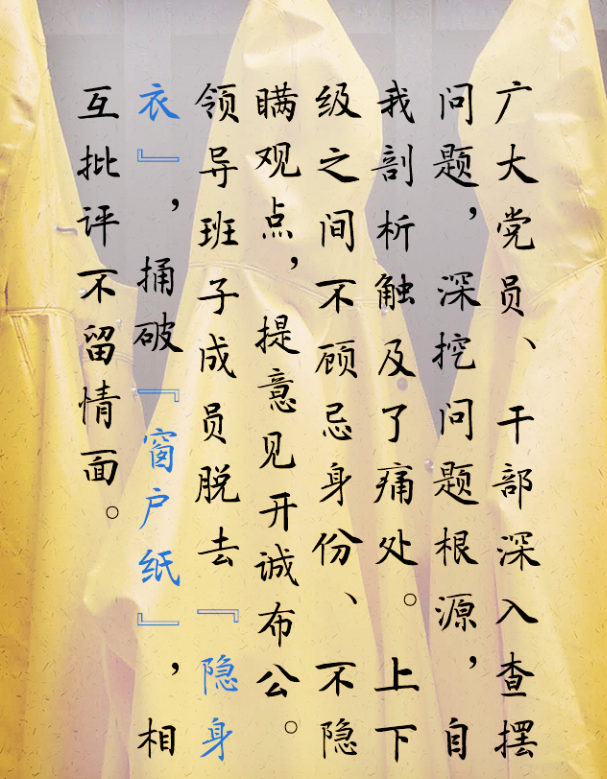 广大党员、干部深入查摆
问题，深挖问题根源，自
我剖析触及了痛处。上下
级之间不顾忌身份、不隐
瞒观点，提意见开诚布公。
领导班子成员脱去『隐身
衣』，捅破『窗户纸』，相
互批评不留情面。